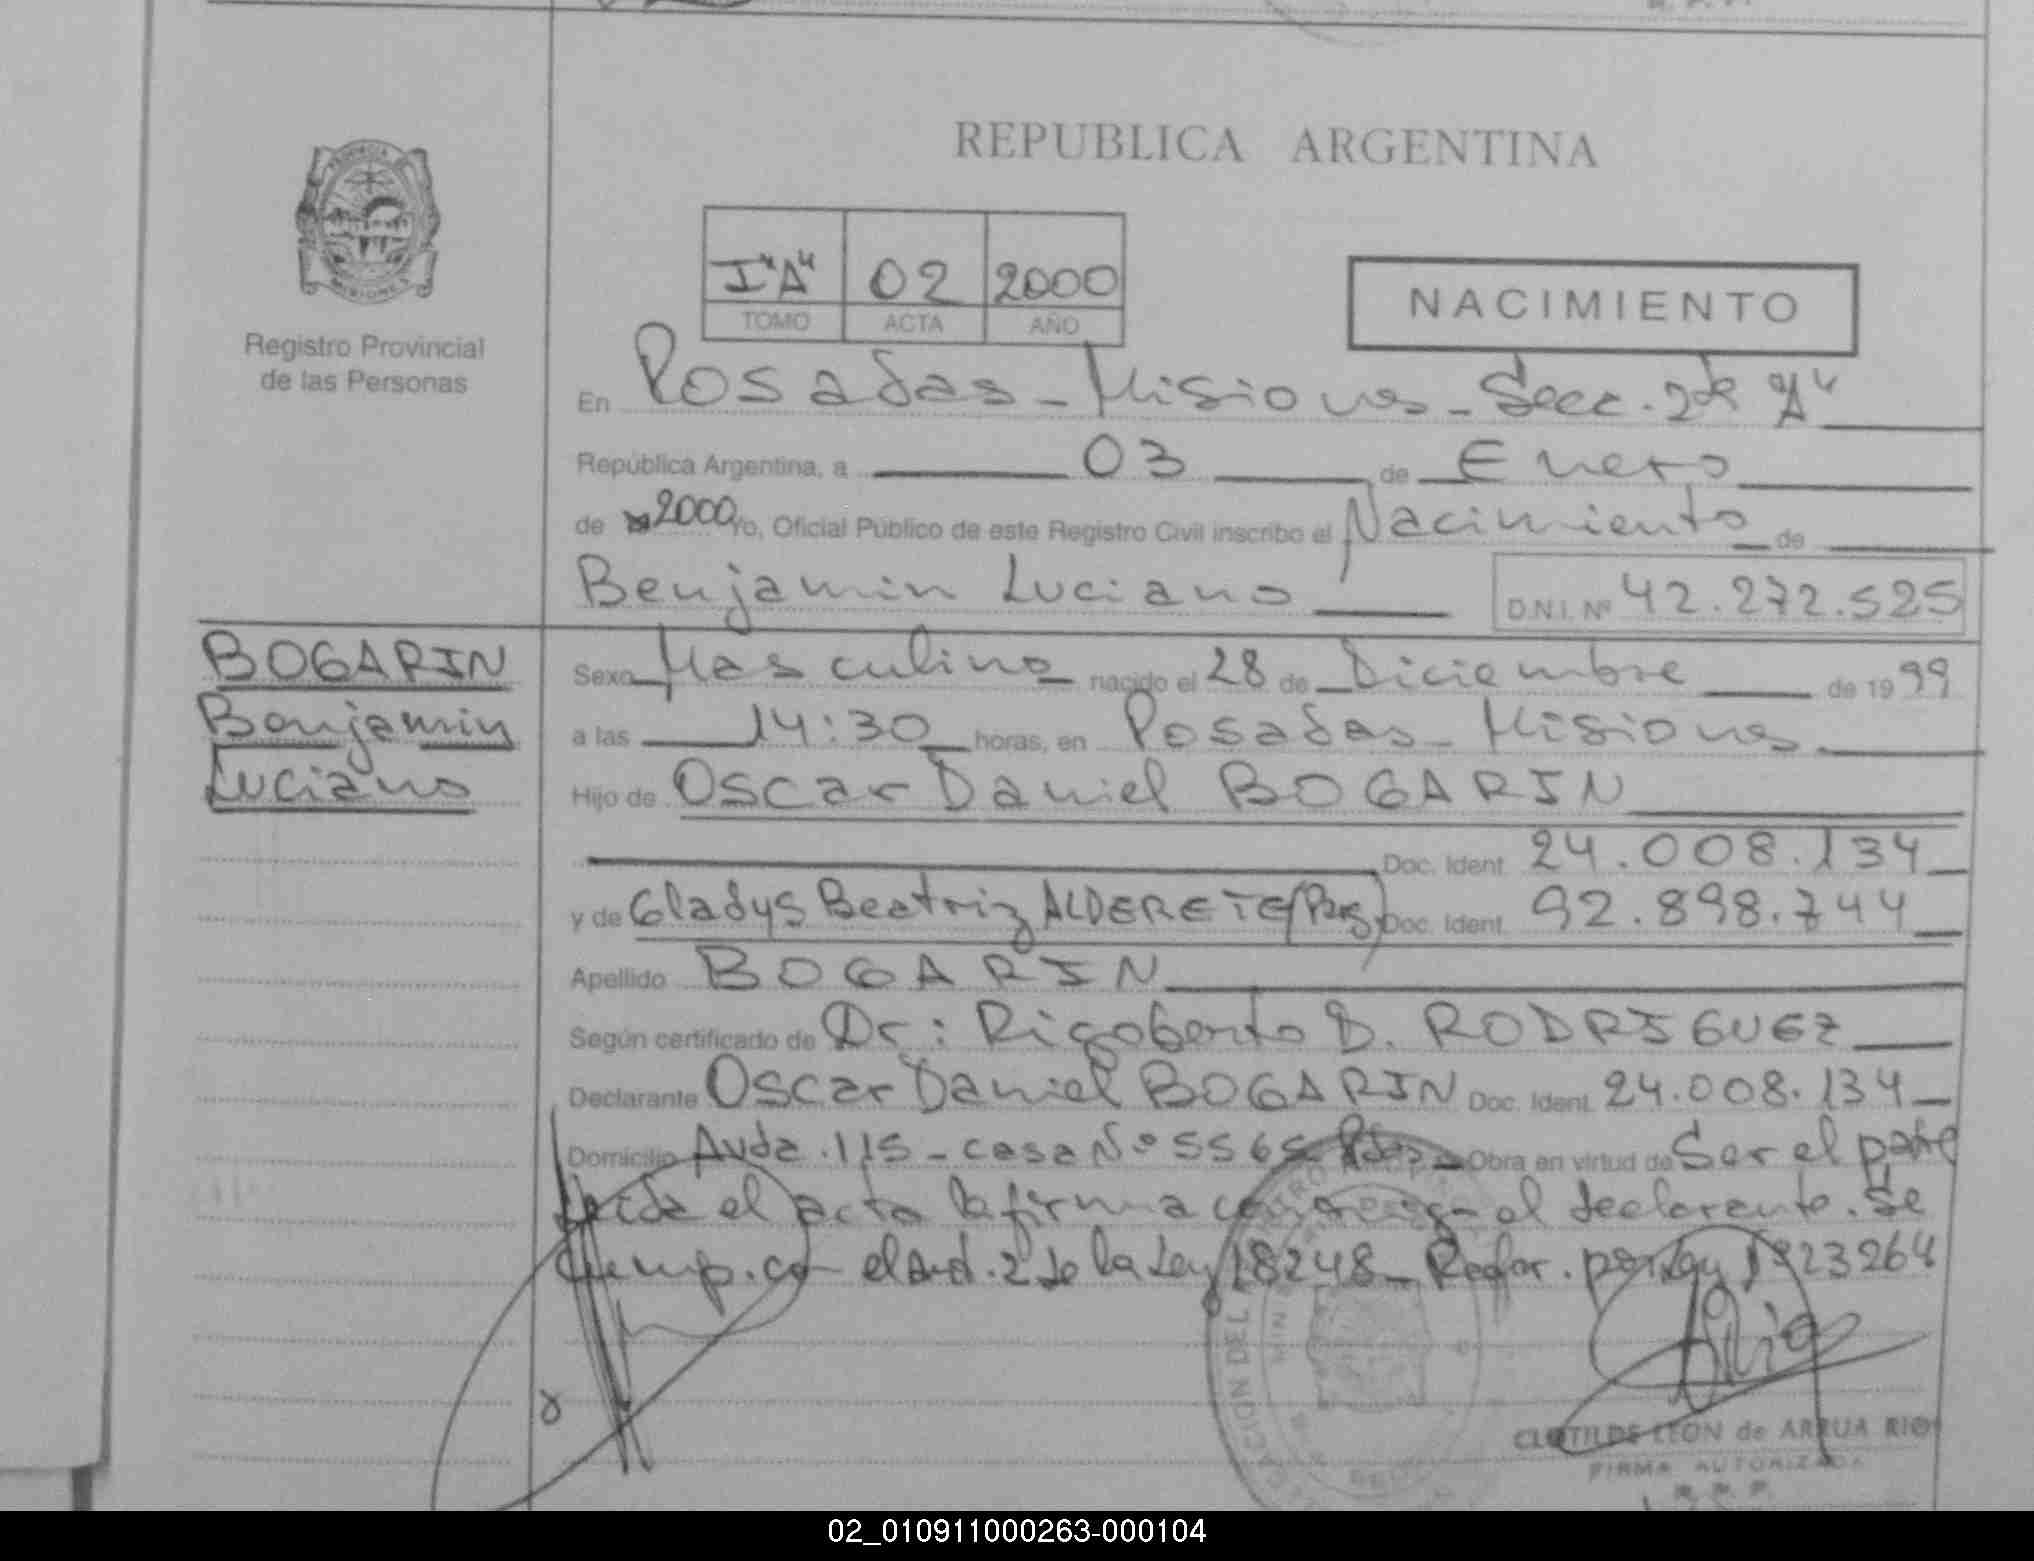 REPUBLICA ARGENTINA
PROVINCIA DE
MISIONES
Registro Provincial
de las Personas
I "A" 02 2000
TOMO ACTA AÑO
NACIMIENTO
En Posadas - Misiones - Secc. 2da "A"
República Argentina, a 03 de Enero
de 2000 Yo, Oficial Público de este Registro Civil inscribo el Nacimiento de
Benjamin Luciano D.N.I. Nº 42.272.525
BOGARIN
Benjamin
Luciano
Sexo Masculino nacido el 28 de Diciembre de 1999
a las 14:30 horas, en Posadas - Misiones
Hijo de Oscar Daniel BOGARIN
Doc. Ident. 24.008.134
y de Gladys Beatriz ALDERETE (Parg) Doc. Ident. 92.898.744
Apellido BOGARIN
Según certificado de Dr: Rigoberto D. RODRIGUEZ
Declarante Oscar Daniel BOGARIN Doc. Ident. 24.008.134
Domicilio Avda. 115 - casa Nº 5565 Pdas Obra en virtud de Ser el padre
Leida el acta la firma conmigo el declarante. Se
cump. con el Art. 2 de la Ley 18248 - Refor. por Ley 23264
CLOTILDE LEON de ARRUA RIOS
FIRMA AUTORIZADA
R. P. P.
02_010911000263-000104